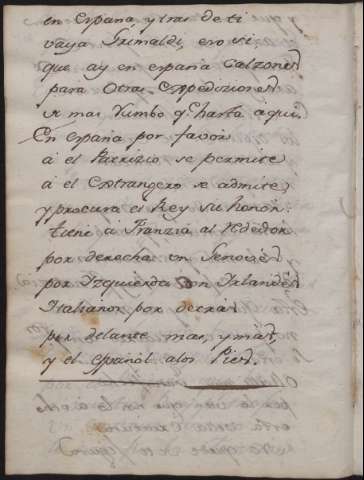 en españa y tras de ti
vaya Grimaldi, eso si
que ay en españa Calzones
para Otras Expediciones
de mas rumbo q.e hasta aqui.
En españa por favor
á el Patrizio se permite
á el Estrangero se admite
y procura el Rey su honor.
tiene a Franzia al rededor
por derecha un Genoves
por Izquierda un Irlandés
Italianos por detras
por delante mas, y mas
y el español a los Pies.